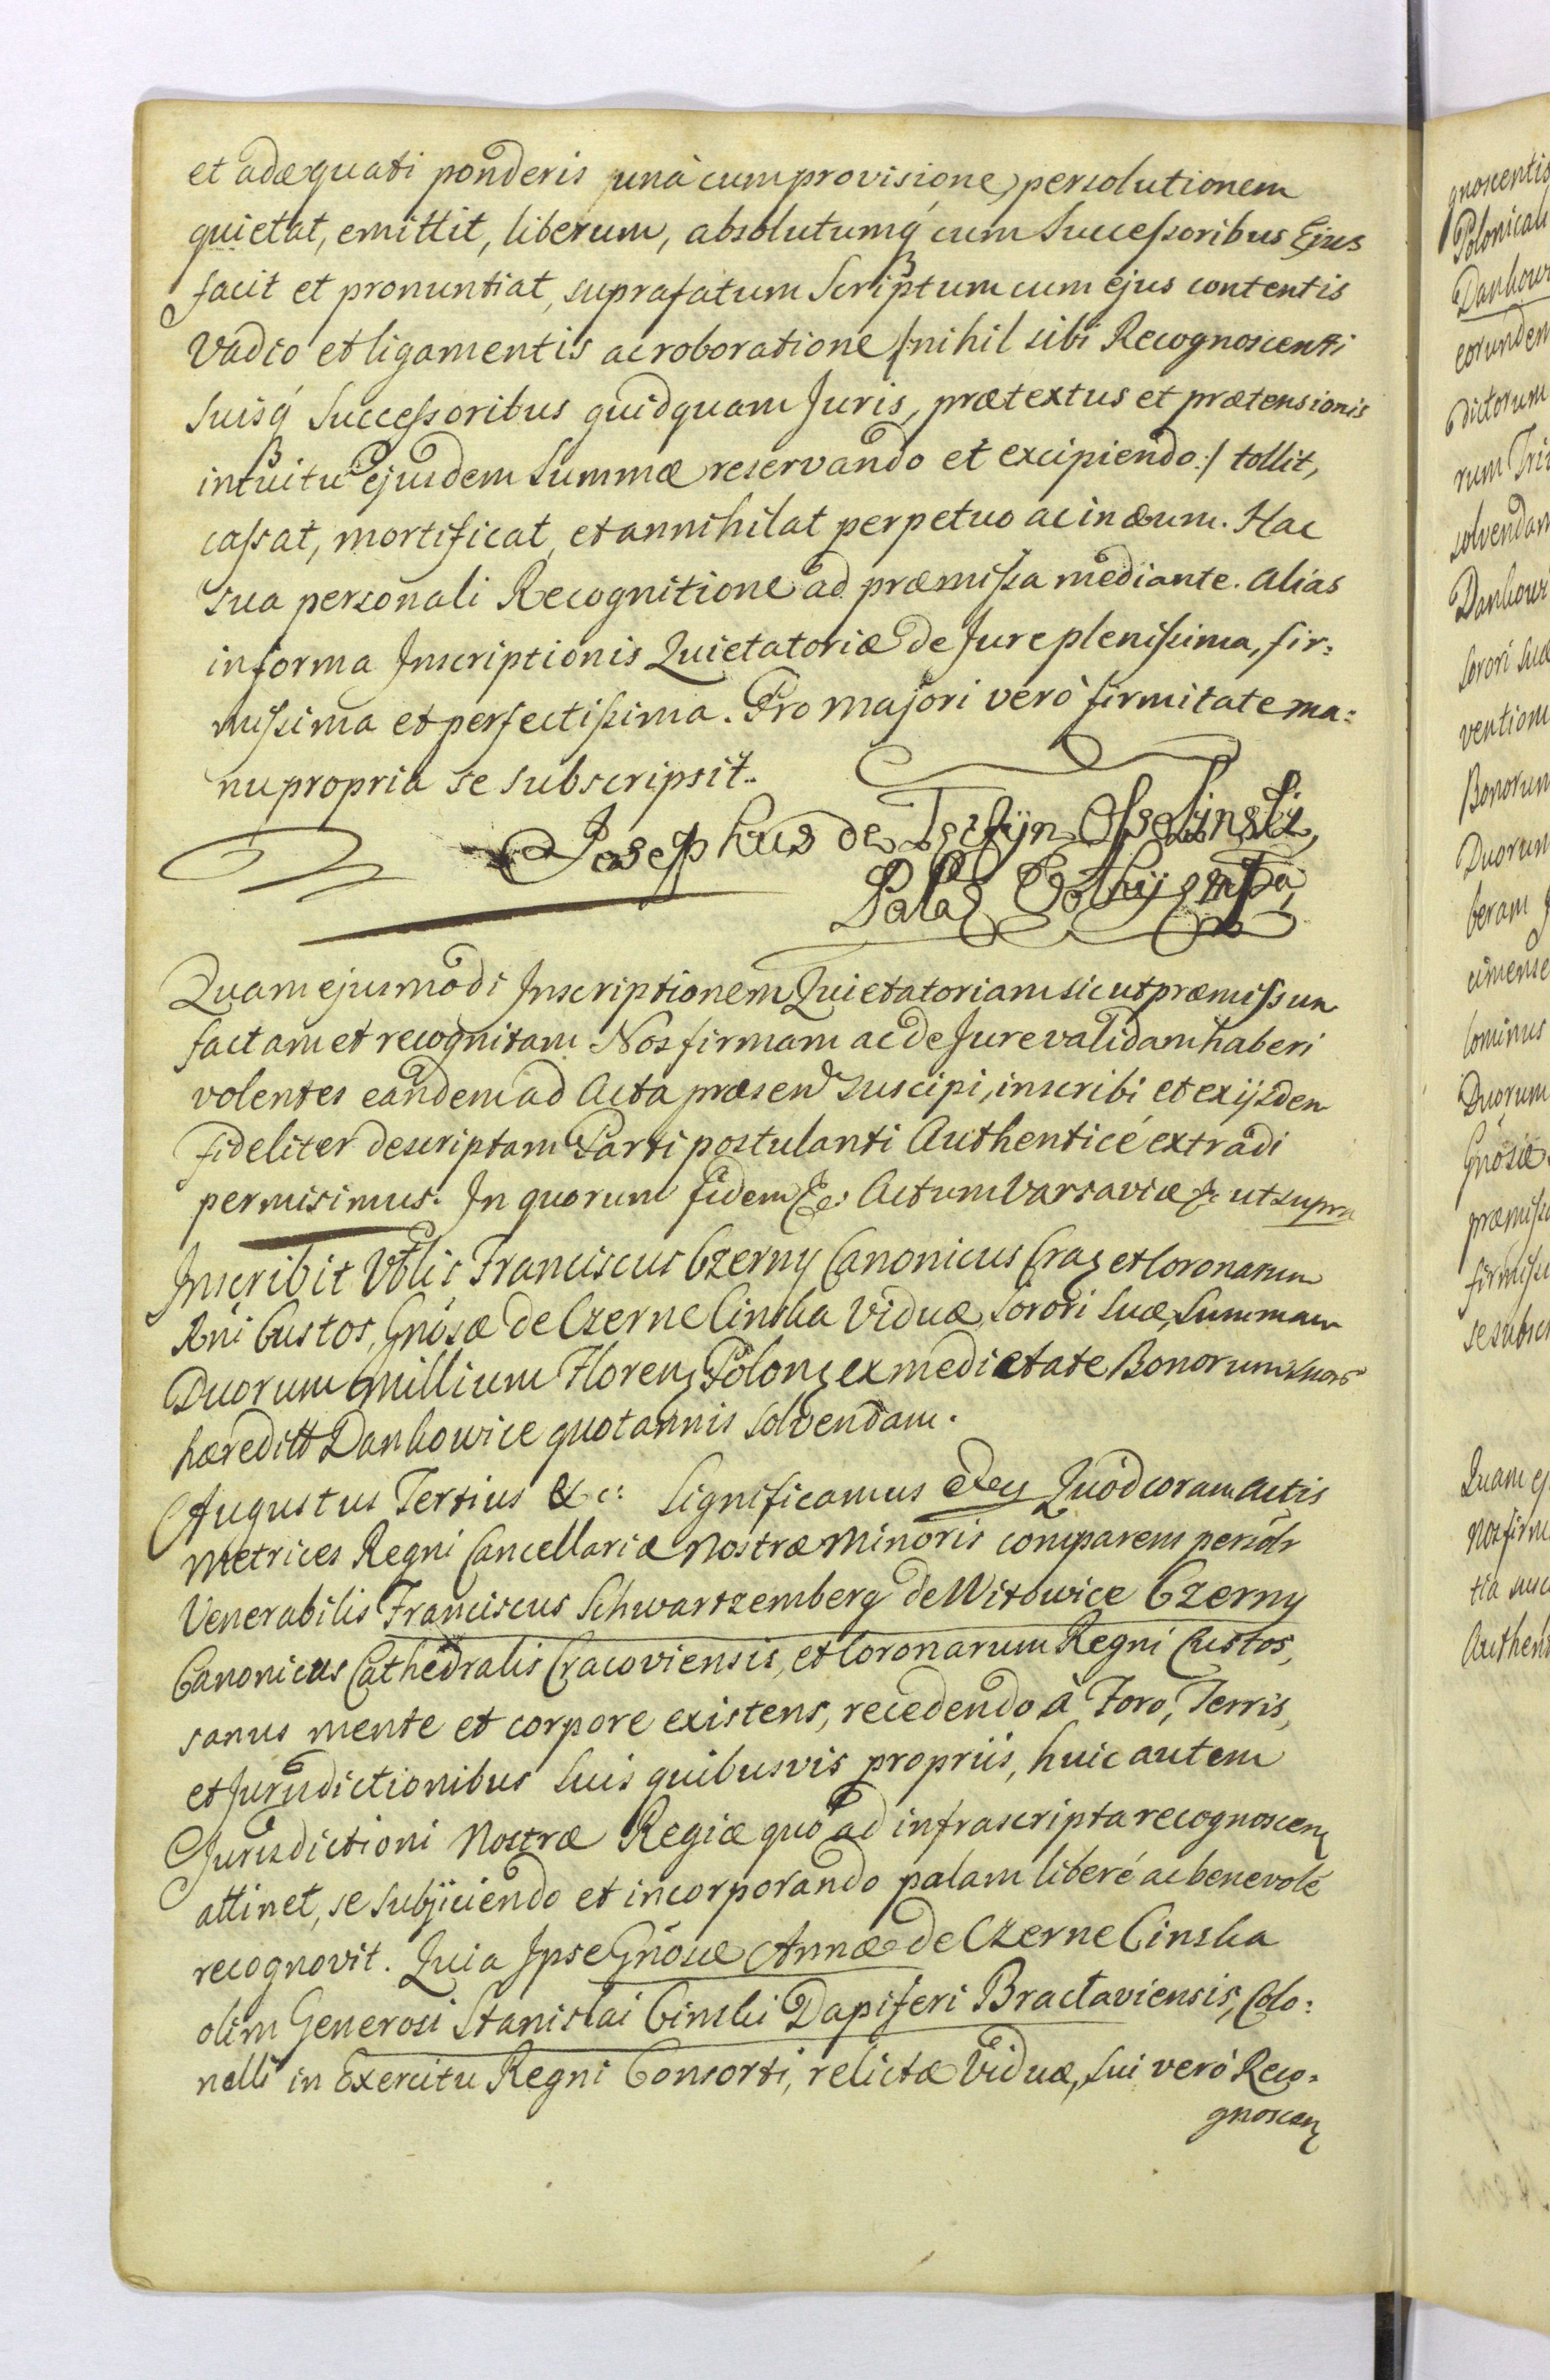 et adæquati ponderis unà cum provisione, persolutionem
quietat, emittit, liberum, absolutumq́ cum Successoribus Ejus
facit et pronuntiat, suprafatum Scriptum cum ejus contentis
Vadio et ligamentis ac roboratione /:nihil sibi Recognoscenti
Suisq́ Successoribus quidquam Juris, prætextus et prætensionis
intuitu ejusdem Summæ reservando et excipiendo:/ tollit,
cassat, mortificat, et annihilat perpetuo ac in ævum. Hac
sua personali Recognitione ad præmissa mediante. Alias
in forma Inscriptionis Quietatoriæ de Jure plenissima, fir:
missima et perfectissima. Pro majori verò firmitate ma:
nu propria se subscripsit.
Josephus de Tęczyn Ossolinski,
Palaz
Quam ejusmodi Inscriptionem Quietatoriam sicut præmissum
factam et recognitam Nos firmam ac de Jure validam haberi
volentes eandem ad Acta præsen suscipi, inscribi et ex ijsdem
fideliter descriptam Parti postulanti Authenticé extradi
permisimus. In quorum fidem &c: Actum Varsaviæ &c ut supra
Inscribit Vblis Franciscus Czerny Canonicus Craz et Coronarum
Rni Custos, Gnosæ de Czerne Cinska Viduæ, Sorori Suæ, Summam
Duorum Millium Florenz Polonz ex medietate Bonorum suor
hæreditt Dankowice quotannis solvendam.
Augustus Tertius &c: Significamus &c Quod coram actis
Metrices Regni Cancellariæ Nostræ Minoris comparens personr
Venerabilis Franciscus Schwartzemberg de Witowice Czerny
Canonicus Cathedralis Cracoviensis, et Coronarum Regni Custos,
sanus mente et corpore existens, recedendo à Foro, Terris,
et Jurisdictionibus Suis quibusvis propriis, huic autem
Jurisdictioni Nostræ Regiæ quo ad infrascripta recognoscenz
attinet, se subjiciendo et incorporando palam liberé ac benevolé
recognovit. Quia Ipse Gnosæ Annæ de Czerne Cinska
olim Generosi Stanislai Cinski Dapiferi Braclaviensis, Colo:
nelli in Exercitu Regni Consorti, relictæ Viduæ, sui veró Reco:
gnoscenz
gnoscentis
eorundem
dictorum
solvendam
Sorori Suæ
Bonorum
Duorum
Duorum
Gnosæ
Quam ej